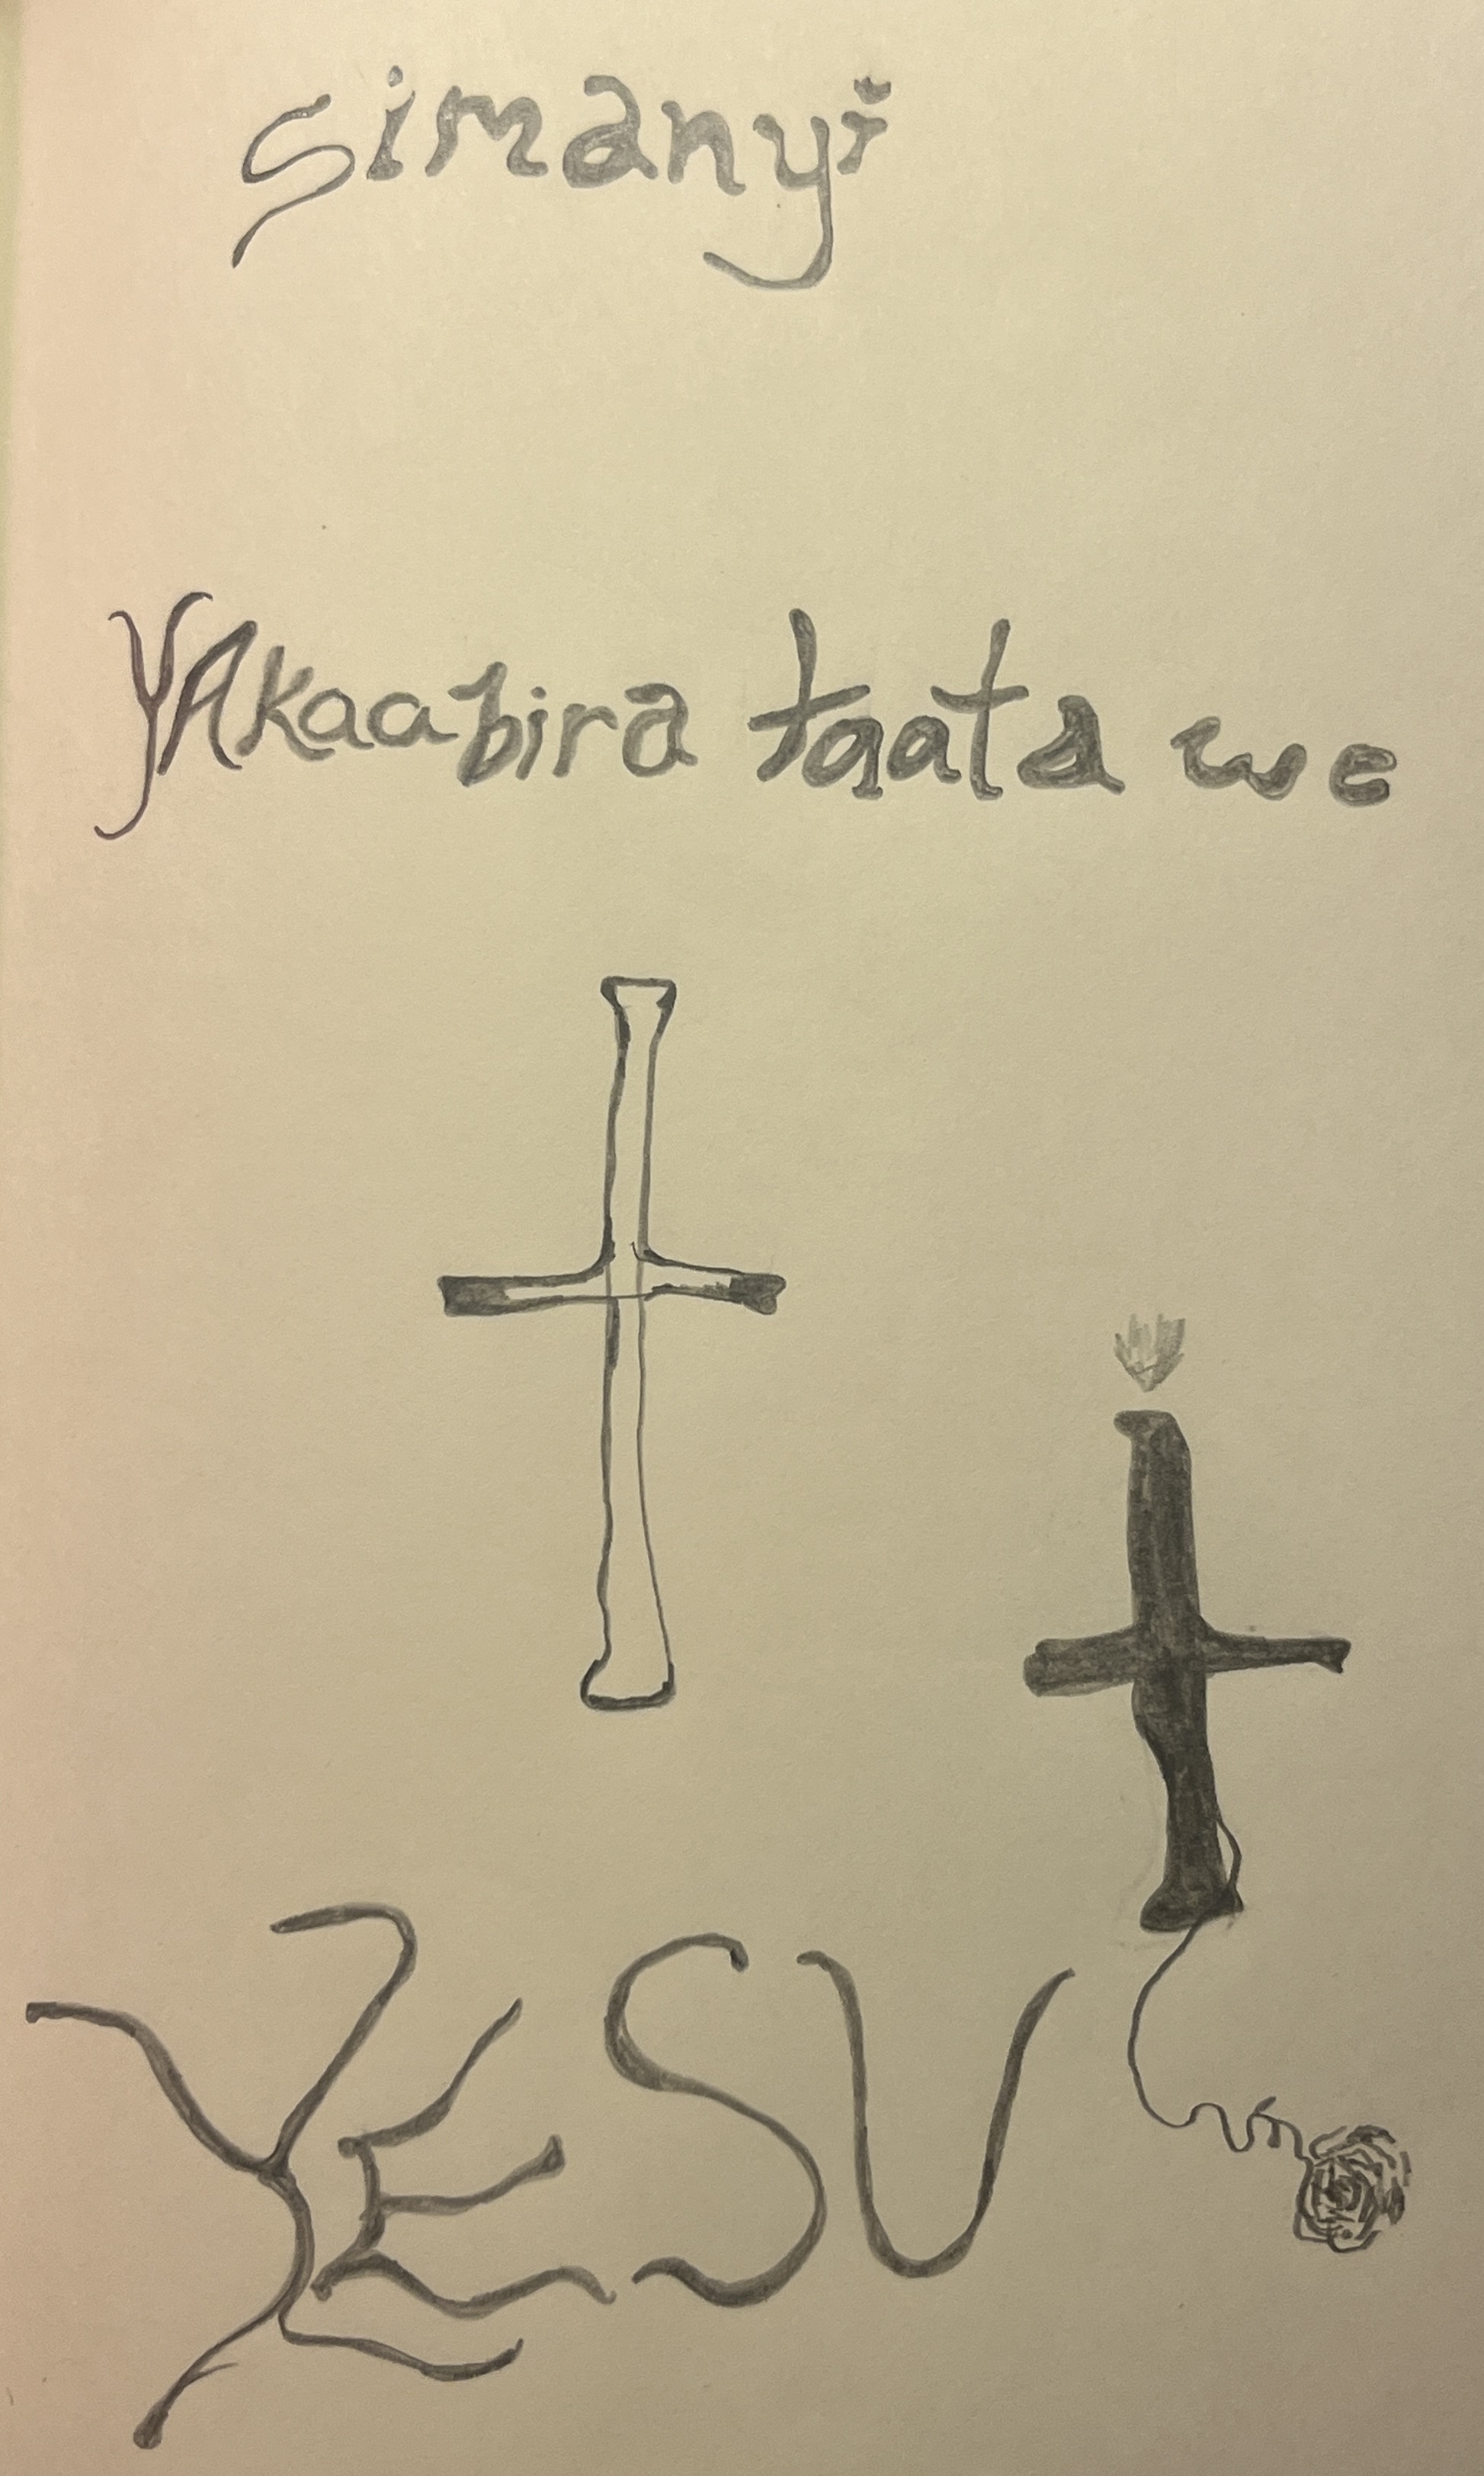 simanyi
YAkaabira taata we
YESU